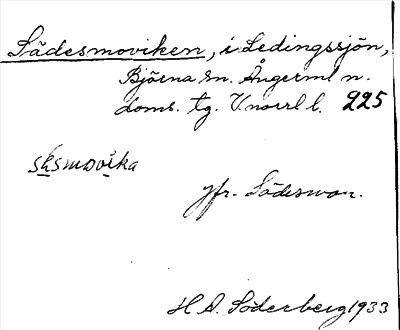 Sädesmoviken, i Ledingssjön,
Björna sn. Ångerml n.
doms. tg. V.norrl l. 225
jfr. Sädesmon.
H. S. Söderberg 1933